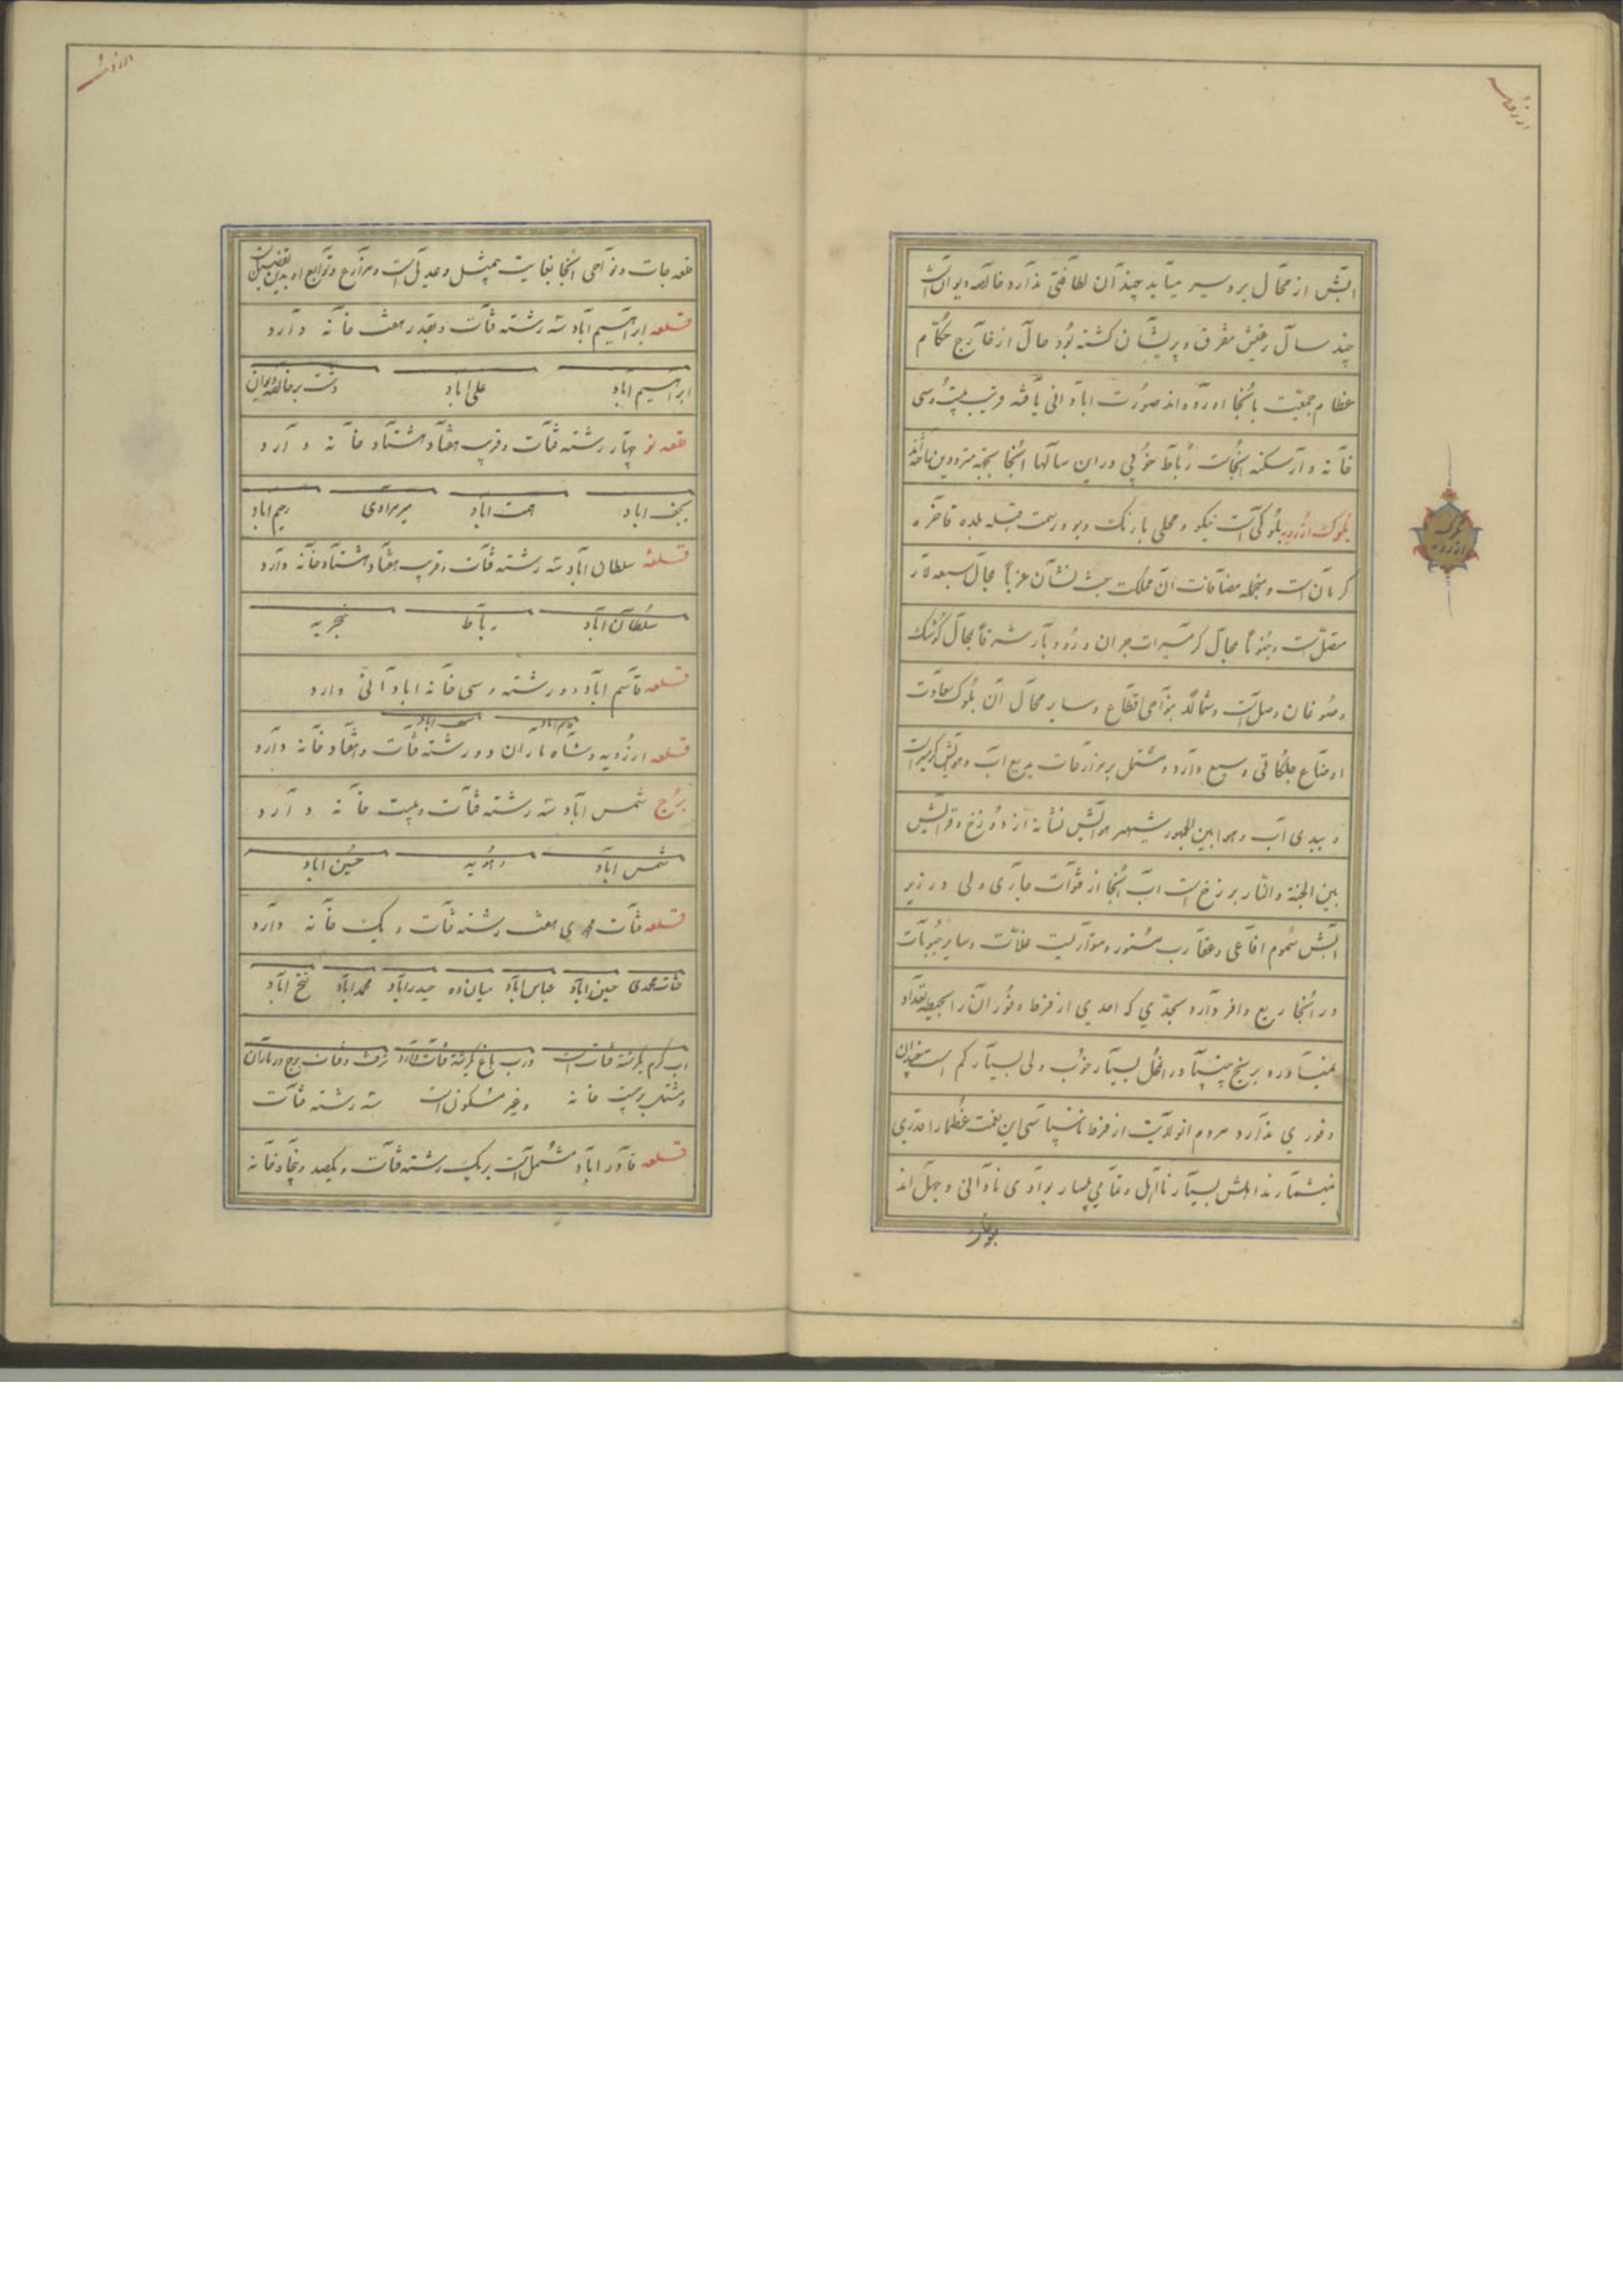 ابش از محال بردسیر میآید چندان لطافتی ندارد خالصه دیوان است
چند سال رعیتش متفرق و پریشان گشته بود حال از خارج حکام
عظام جمعیت بانجا آورده اند صورت ابادانی یافته قریب بیست و سی
خانه دار سکنه انجاست رباط خوبی در این سالها انجا بجهة مترددین ساخته اند
بلوک ارزویه بلوکی است نیکو و محلی با رنگ و بو در سمت قبله بلده فاخره
کرمان است و منجمله مضافات ان مملکت غرباً بمحال سبعه لار
متصل است و جنوباً بمحال گرمسیرات جیران و رودبار شرقاً بمحال گوشک
و صوغان وصل است و شمالاً بنواحی اقطاع و سایر محال آن بلوک سعادت
اوضاع جلگاتی وسیع دارد و مشتمل بر مزارعات بدیع آب و هوایش گرمسیر است
و ببدی آب و هوا بین الجمهور شهیر هوایش نشانه از دوزخ و قرایش
بین الجنة و النار برزخ است آب انجا از قنوات جاری ولی در زیر
آبش سموم افاعی و عقارب مستور و متواریست غلات و سایر حبوبات
در انجا ریع وافر دارد بحدی که احدی از فرط وفور آن را بحیطه تعداد
نمیآورد برنج چنپا در انمحل بسیار خوب ولی بسیار کم است چندان
وفوری ندارد مردم انولایت از فرط ناسپاسی این نعمت عظما را قدری
نمیشمارند اهلش بسیار نااهل و تمامی بسیار بوادی نادانی و جهل اند
بلوک ارزویه
قلعه جات و نواحی انجا بغایت بیمثل و عدیل است و مزارع و توابع او بدین تفصیل است
قلعه ابراهیم آباد سه رشته قنات و بقدر هفت خانه دارد
ابراهیم آباد علی آباد دشت بر خالصه دیوان
قلعه نو چهار رشته قنات و قریب هفتاد هشتاد خانه دارد
نجف اباد همت اباد میرمرادی رحیم اباد
قلعهٔ سلطان آباد سه رشته قنات و قریب هفتاد هشتاد خانه دارد
سلطان آباد رباط خجریه
قلعه قاسم آباد دو رشته و سی خانه ابادانی دارد
قاسم اباد نجف اباد
قلعه ارزویه و شاه ماران دو رشته قنات و هفتاد خانه دارد
برج شمس آباد سه رشته قنات و بیست خانه دارد
شمس اباد دهویه حسین اباد
قلعه قنات محمدی هفت رشته قنات و یک خانه دارد
قنات محمدی حسین اباد عباس اباد میان ده حیدر اباد محمد اباد فتح اباد
آب گرم یکرشته قنات است درب باغ یکرشته قنات دارد
و مشتمل بر بیست خانه و غیر مسکون است سه رشته قنات
قلعه قادر اباد مشتمل است بر یک رشته قنات و یکصد و پنجاه خانه